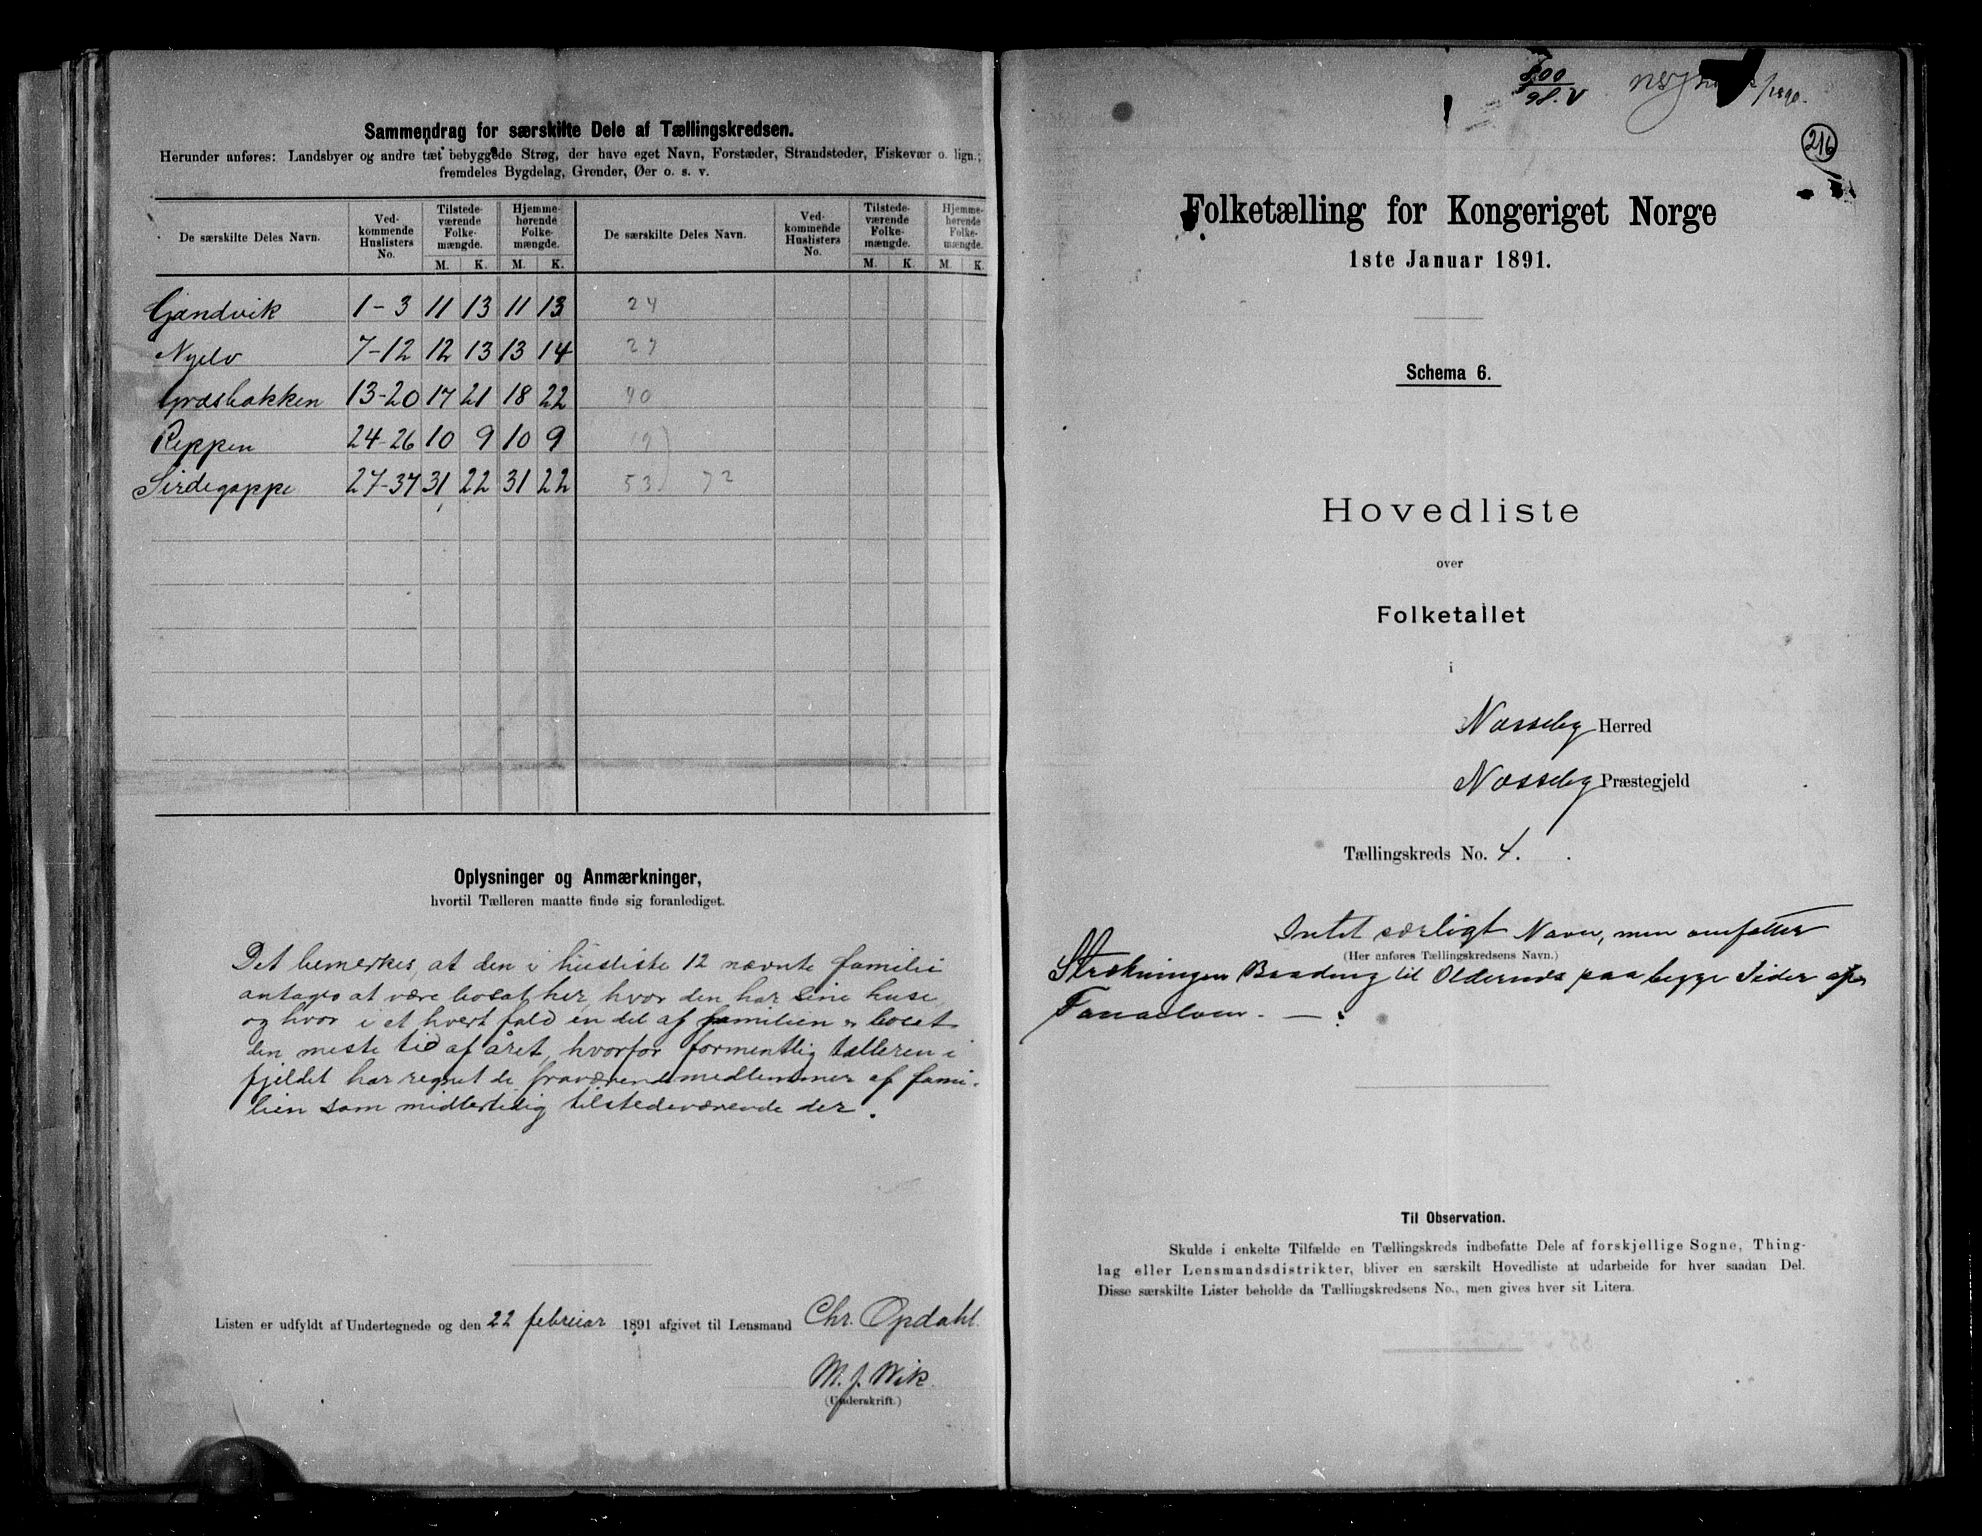 Sammendrag for særskilte Dele af Tællingskredsen.
Herunder anføres: Landsbyer og andre tæt bebyggede Strøg, der have eget Navn, Forstæder, Strandsteder, Fiskevær o. lign.;
fremdeles Bygdelag, Grender, Øer o. s. v.
De særskilte Deles Navn. Ved-kommende Huslisters No. Tilstede-værende Folke-mængde. Hjemme-hørende Folke-mængde. De særskilte Deles Navn. Ved-kommende Huslisters No. Tilstede-værende Folke-mængde. Hjemme-hørende Folke-mængde.
M. K. M. K. M. K. M. K.
Gandvik 1-3 11 13 11 13 24
Nyelv 7-12 12 13 13 14 27
Græsbakken 13-20 17 21 18 22 40
Reppen 24-26 10 9 10 9 19
Sirdegoppe 27-37 31 22 31 22 53 72
Oplysninger og Anmærkninger,
hvortil Tælleren maatte finde sig foranlediget.
Det bemerkes, at den i husliste 12 nævnte familie
antages at være bosat her, hvor den har sine huse,
og hvor i et hvert fald en del af familien er bosat
den meste tid af året, hvorfor formentlig tælleren i
fjeldet har regnet de fraværende medlemmer af fami-
lien som midlertidig tilstedeværende der.
Listen er udfyldt af Undertegnede og den 22 februar 1891 afgivet til Lensmand Chr. Opdahl.
M. J. Wik.
(Underskrift.)
800
98. V
216
Folketælling for Kongeriget Norge
1ste Januar 1891.
Schema 6.
Hovedliste
over
Folketallet
i
Næsseby Herred
Næsseby Præstegjeld
Tællingskreds No. 4.
Intet særligt Navn, men omfatter
(Her anføres Tællingskredsens Navn.)
Strækningen til paa begge Sider af
Tanaelven.
Til Observation.
Skulde i enkelte Tilfælde en Tællingskreds indbefatte Dele af forskjellige Sogne, Thing-
lag eller Lensmandsdistrikter, bliver en særskilt Hovedliste at udarbeide for hver saadan Del.
Disse særskilte Lister beholde da Tællingskredsens No., men gives hver sit Litera.